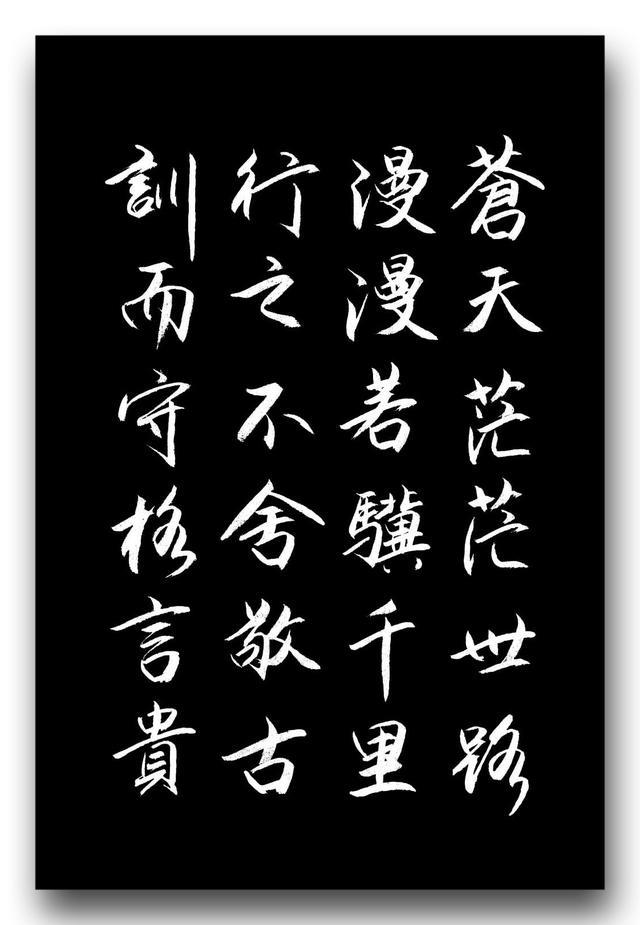 蒼天茫茫世路
漫漫若驥千里
行之不舍敬古
訓而守格言貴